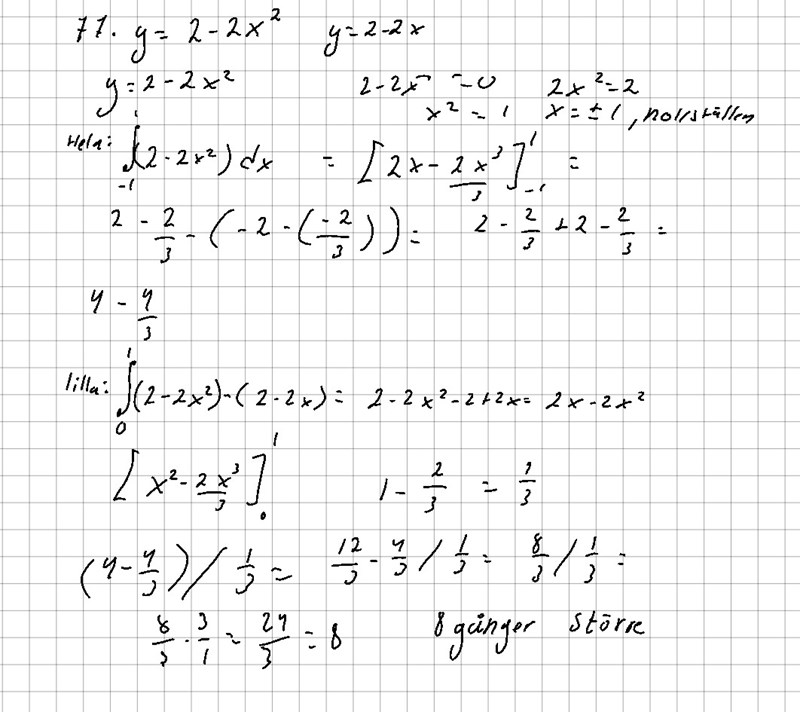 71. y = 2 - 2x² y = 2 - 2x
y = 2 - 2x² 2 - 2x² = 0 2x² = 2
x² = 1 x = ±1, nollställen
Hela: ∫₋₁¹ (2 - 2x²) dx = [2x - 2x³/3]₋₁¹ =
2 - 2/3 - (-2 - (-2/3)) = 2 - 2/3 + 2 - 2/3 =
4 - 4/3
lilla: ∫₀¹ (2 - 2x²) - (2 - 2x) = 2 - 2x² - 2 + 2x = 2x - 2x²
[x² - 2x³/3]₀¹ 1 - 2/3 = 1/3
(4 - 4/3) / 1/3 = 12/3 - 4/3 / 1/3 = 8/3 / 1/3 =
8/3 · 3/1 = 24/3 = 8 8 gånger större